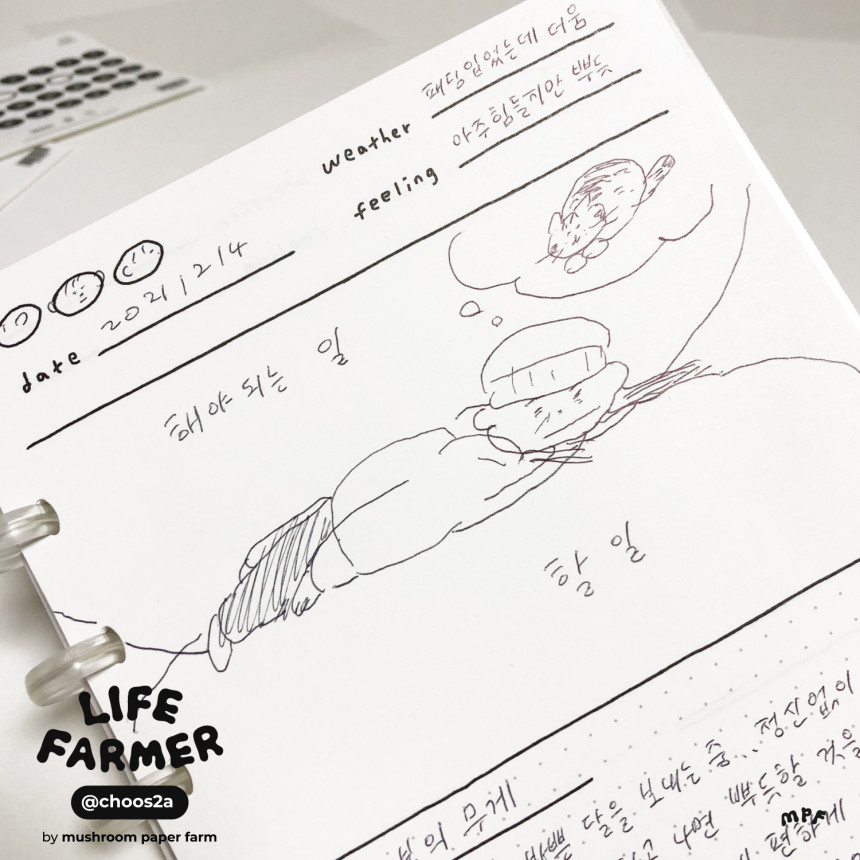 weather 패딩입었는데 더움
feeling 아주힘들지만 뿌듯
date 2021 12 14
해야 되는 일
할 일
무게
바쁜 달을 보내는 중.. 정신없이
나면 뿌듯할 것을
편하게
MPF
LIFE
FARMER
@choos2a
by mushroom paper farm